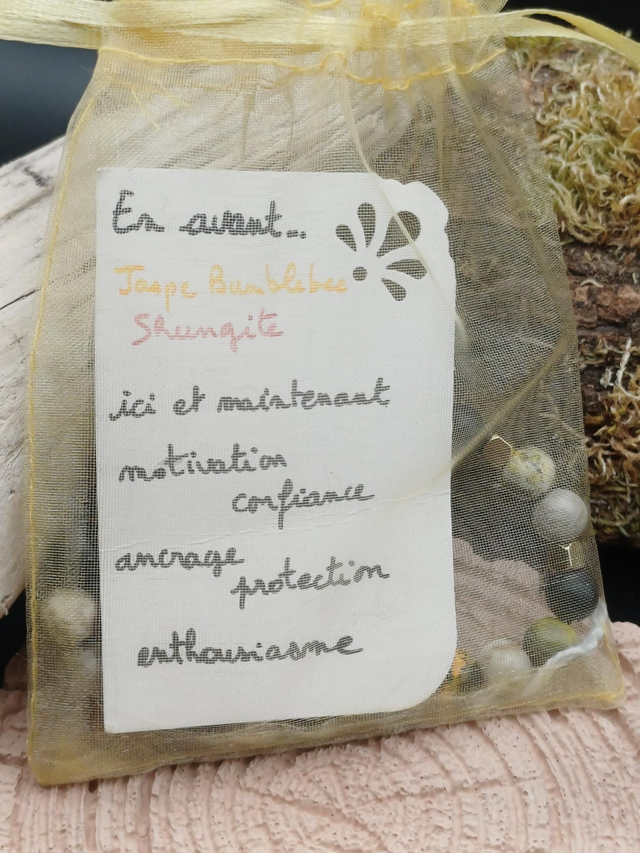 En avant...
Jaspe Bumblebee
Shungite
ici et maintenant
motivation
confiance
ancrage
protection
enthousiasme